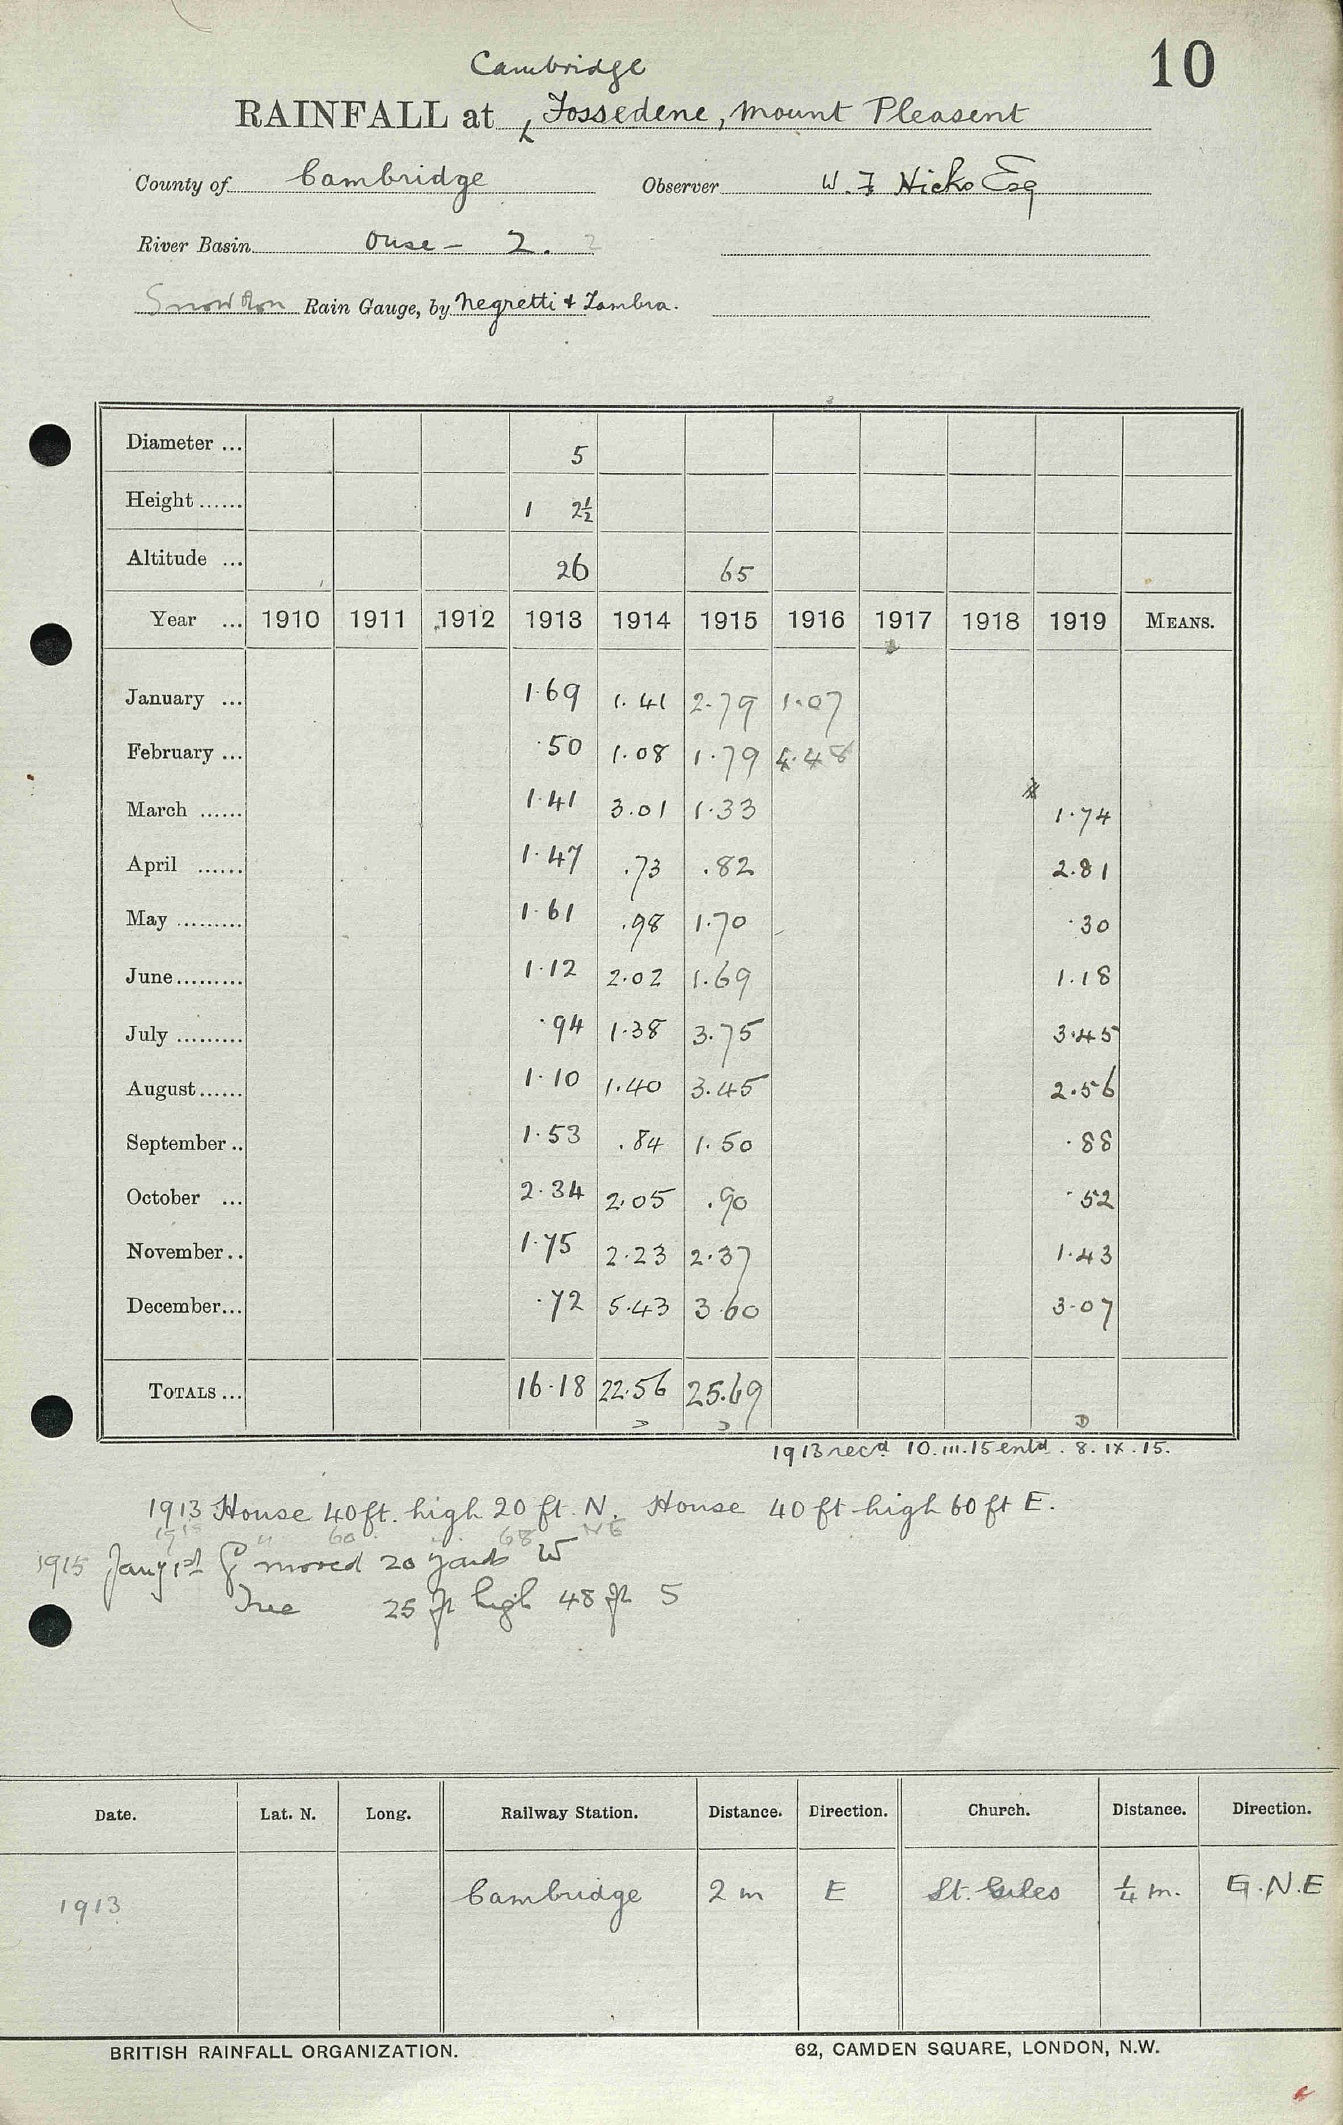 10
Cambridge
RAINFALL at Fossedene, Mount Pleasent
County of Cambridge Observer W. F Hicks Esq
River Basin Ouse - 2. 2
Snowdon Rain Gauge, by Negretti & Zambra.
Diameter ... 5
Height ...... 1 2½
Altitude ... 26 65
Year ... 1910 1911 1912 1913 1914 1915 1916 1917 1918 1919 MEANS.
January ... 1.69 1.41 2.79 1.07
February ... .50 1.08 1.79 4.48
March ...... 1.41 3.01 1.33 1.74
April ...... 1.47 .73 .82 2.81
May ......... 1.61 .98 1.70 .30
June ......... 1.12 2.02 1.69 1.18
July ......... .94 1.38 3.75 3.45
August ...... 1.10 1.40 3.45 2.56
September .. 1.53 .84 1.50 .88
October ... 2.34 2.05 .90 .52
November .. 1.75 2.23 2.37 1.43
December ... .72 5.43 3.60 3.07
TOTALS ... 16.18 22.56 25.69
D D D
1913 recd 10.III.15 entd. 8.IX.15.
1913 House 40 ft. high 20 ft. N. House 40 ft high 60 ft E.
" 60 " 68 NE
1915 Jany 1st G moved 20 yards W
Tree 25 ft high 48 ft S
Date. Lat. N. Long. Railway Station. Distance. Direction. Church. Distance. Direction.
1913 Cambridge 2 m E St. Giles ¼ m. E.N.E
BRITISH RAINFALL ORGANIZATION. 62, CAMDEN SQUARE, LONDON, N.W.